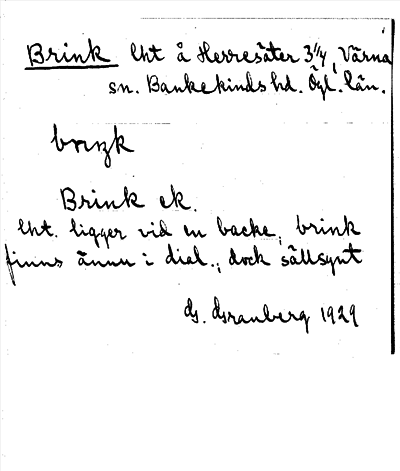 Brink lht å Herresäter 3 1/4, Värna
sn. Bankekinds hd. Ögl. län.
brıŋk
Brink ek.
lht. ligger vid en backe; brink
finns ännu i dial.; dock sällsynt
G. Granberg 1929